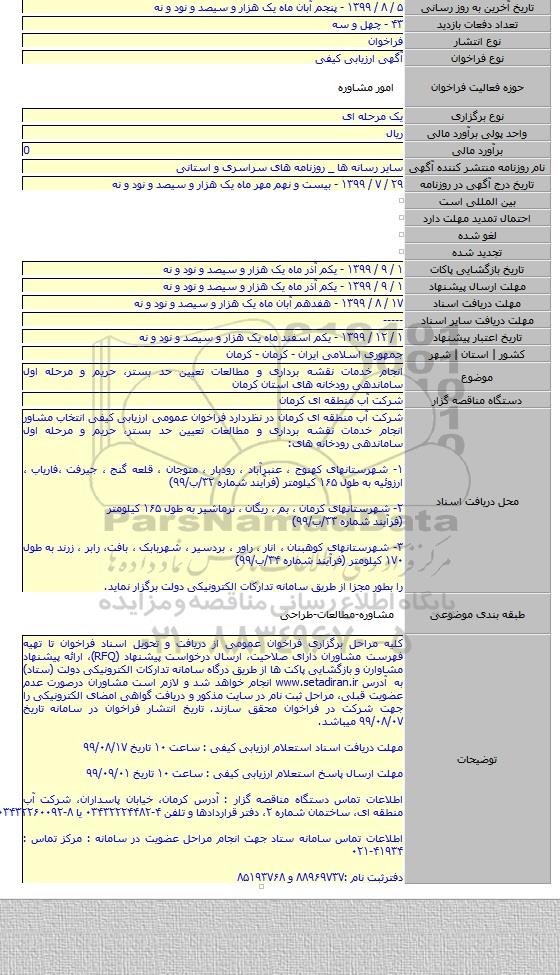 تاریخ آخرین به روز رسانی ۵ / ۸ / ۱۳۹۹ - پنجم آبان ماه یک هزار و سیصد و نود و نه
تعداد دفعات بازدید ۴۳ - چهل و سه
نوع انتشار فراخوان
نوع فراخوان آگهی ارزیابی کیفی
حوزه فعالیت فراخوان امور مشاوره
نوع برگزاری یک مرحله ای
واحد پولی برآورد مالی ریال
برآورد مالی 0
نام روزنامه منتشر کننده آگهی سایر رسانه ها _ روزنامه های سراسری و استانی
تاریخ درج آگهی در روزنامه ۲۹ / ۷ / ۱۳۹۹ - بیست و نهم مهر ماه یک هزار و سیصد و نود و نه
بین المللی است
احتمال تمدید مهلت دارد
لغو شده
تجدید شده
تاریخ بازگشایی پاکات ۱ / ۹ / ۱۳۹۹ - یکم آذر ماه یک هزار و سیصد و نود و نه
مهلت ارسال پیشنهاد ۱ / ۹ / ۱۳۹۹ - یکم آذر ماه یک هزار و سیصد و نود و نه
مهلت دریافت اسناد ۱۷ / ۸ / ۱۳۹۹ - هفدهم آبان ماه یک هزار و سیصد و نود و نه
مهلت دریافت سایر اسناد -----
تاریخ اعتبار پیشنهاد ۱ / ۱۲ / ۱۳۹۹ - یکم اسفند ماه یک هزار و سیصد و نود و نه
کشور | استان | شهر جمهوری اسلامی ایران - کرمان - کرمان
موضوع
انجام خدمات نقشه برداری و مطالعات تعیین حد بستر، حریم و مرحله اول
ساماندهی رودخانه های استان کرمان
دستگاه مناقصه گزار شرکت آب منطقه ای کرمان
محل دریافت اسناد
شرکت آب منطقه ای کرمان در نظردارد فراخوان عمومی ارزیابی کیفی انتخاب مشاور
انجام خدمات نقشه برداری و مطالعات تعیین حد بستر، حریم و مرحله اول
ساماندهی رودخانه های:
۱- شهرستانهای کهنوج ، عنبرآباد ، رودبار ، منوجان ، قلعه گنج ، جیرفت ،فاریاب ،
ارزوئیه به طول ۱۶۵ کیلومتر (فرآیند شماره ۳۲/ب/۹۹)
۲- شهرستانهای کرمان ، بم ، ریگان ، نرماشیر به طول ۱۶۵ کیلومتر
(فرآیند شماره ۳۳/ب/۹۹)
۳- شهرستانهای کوهبنان ، انار ، راور ، بردسیر ، شهربابک ، بافت، رابر ، زرند به طول
۱۷۰ کیلومتر (فرآیند شماره ۳۴/ب/۹۹)
را بطور مجزا از طریق سامانه تدارکات الکترونیکی دولت برگزار نماید.
ParsNamadData
پایگاه اطلاع رسانی مناقصه و مزایده
طبقه بندی موضوعی مشاوره-مطالعات-طراحی
۰۲۱-۸۸۳۴۹۶۷۰-۵
توضیحات
کلیه مراحل برگزاری فراخوان عمومی از دریافت و تحویل اسناد فراخوان تا تهیه
فهرست مشاوران دارای صلاحیت، ارسال درخواست پیشنهاد (RFQ)، ارائه پیشنهاد
مشاوارن و بازگشایی پاکت ها از طریق درگاه سامانه تدارکات الکترونیکی دولت (ستاد)
به آدرس www.setadiran.ir انجام خواهد شد و لازم است مشاوران درصورت عدم
عضویت قبلی، مراحل ثبت نام در سایت مذکور و دریافت گواهی امضای الکترونیکی را
جهت شرکت در فراخوان محقق سازند. تاریخ انتشار فراخوان در سامانه تاریخ
۹۹/۰۸/۰۷ میباشد.
مهلت دریافت اسناد استعلام ارزیابی کیفی : ساعت ۱۰ تاریخ ۹۹/۰۸/۱۷
مهلت ارسال پاسخ استعلام ارزیابی کیفی : ساعت ۱۰ تاریخ ۹۹/۰۹/۰۱
اطلاعات تماس دستگاه مناقصه گزار : آدرس کرمان، خیابان پاسداران، شرکت آب
منطقه ای، ساختمان شماره ۲، دفتر قراردادها و تلفن ۴-۰۳۴۳۲۲۲۴۴۸۲ یا ۸-۰۳۴۳۲۲۶۰۰۹۲
اطلاعات تماس سامانه ستاد جهت انجام مراحل عضویت در سامانه : مرکز تماس :
۰۲۱-۴۱۹۳۴
دفترثبت نام :۸۸۹۶۹۷۳۷ و ۸۵۱۹۳۷۶۸